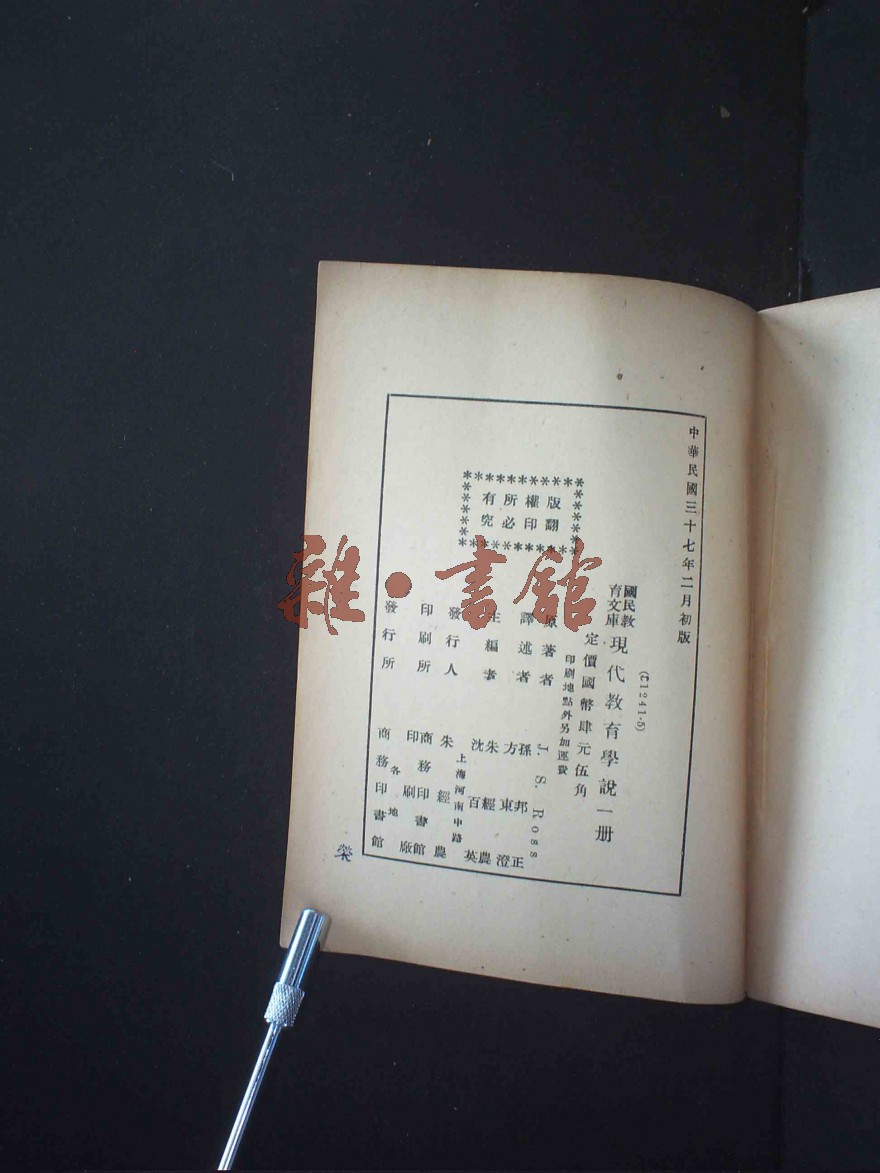 中華民國三十七年二月初版
(C1241·5)
國民教
育文庫 現代教育學說一册
定價國幣肆元伍角
印刷地點外另加運費
版權所有
翻印必究
原著者 J. S. Ross
譯述者 孫邦正
方東澄
主編者 朱經農
沈百英
上海河南中路
發行人 朱經農
印刷所 商務印書館
印刷廠
發行所 各地
商務印書館
雜·書館